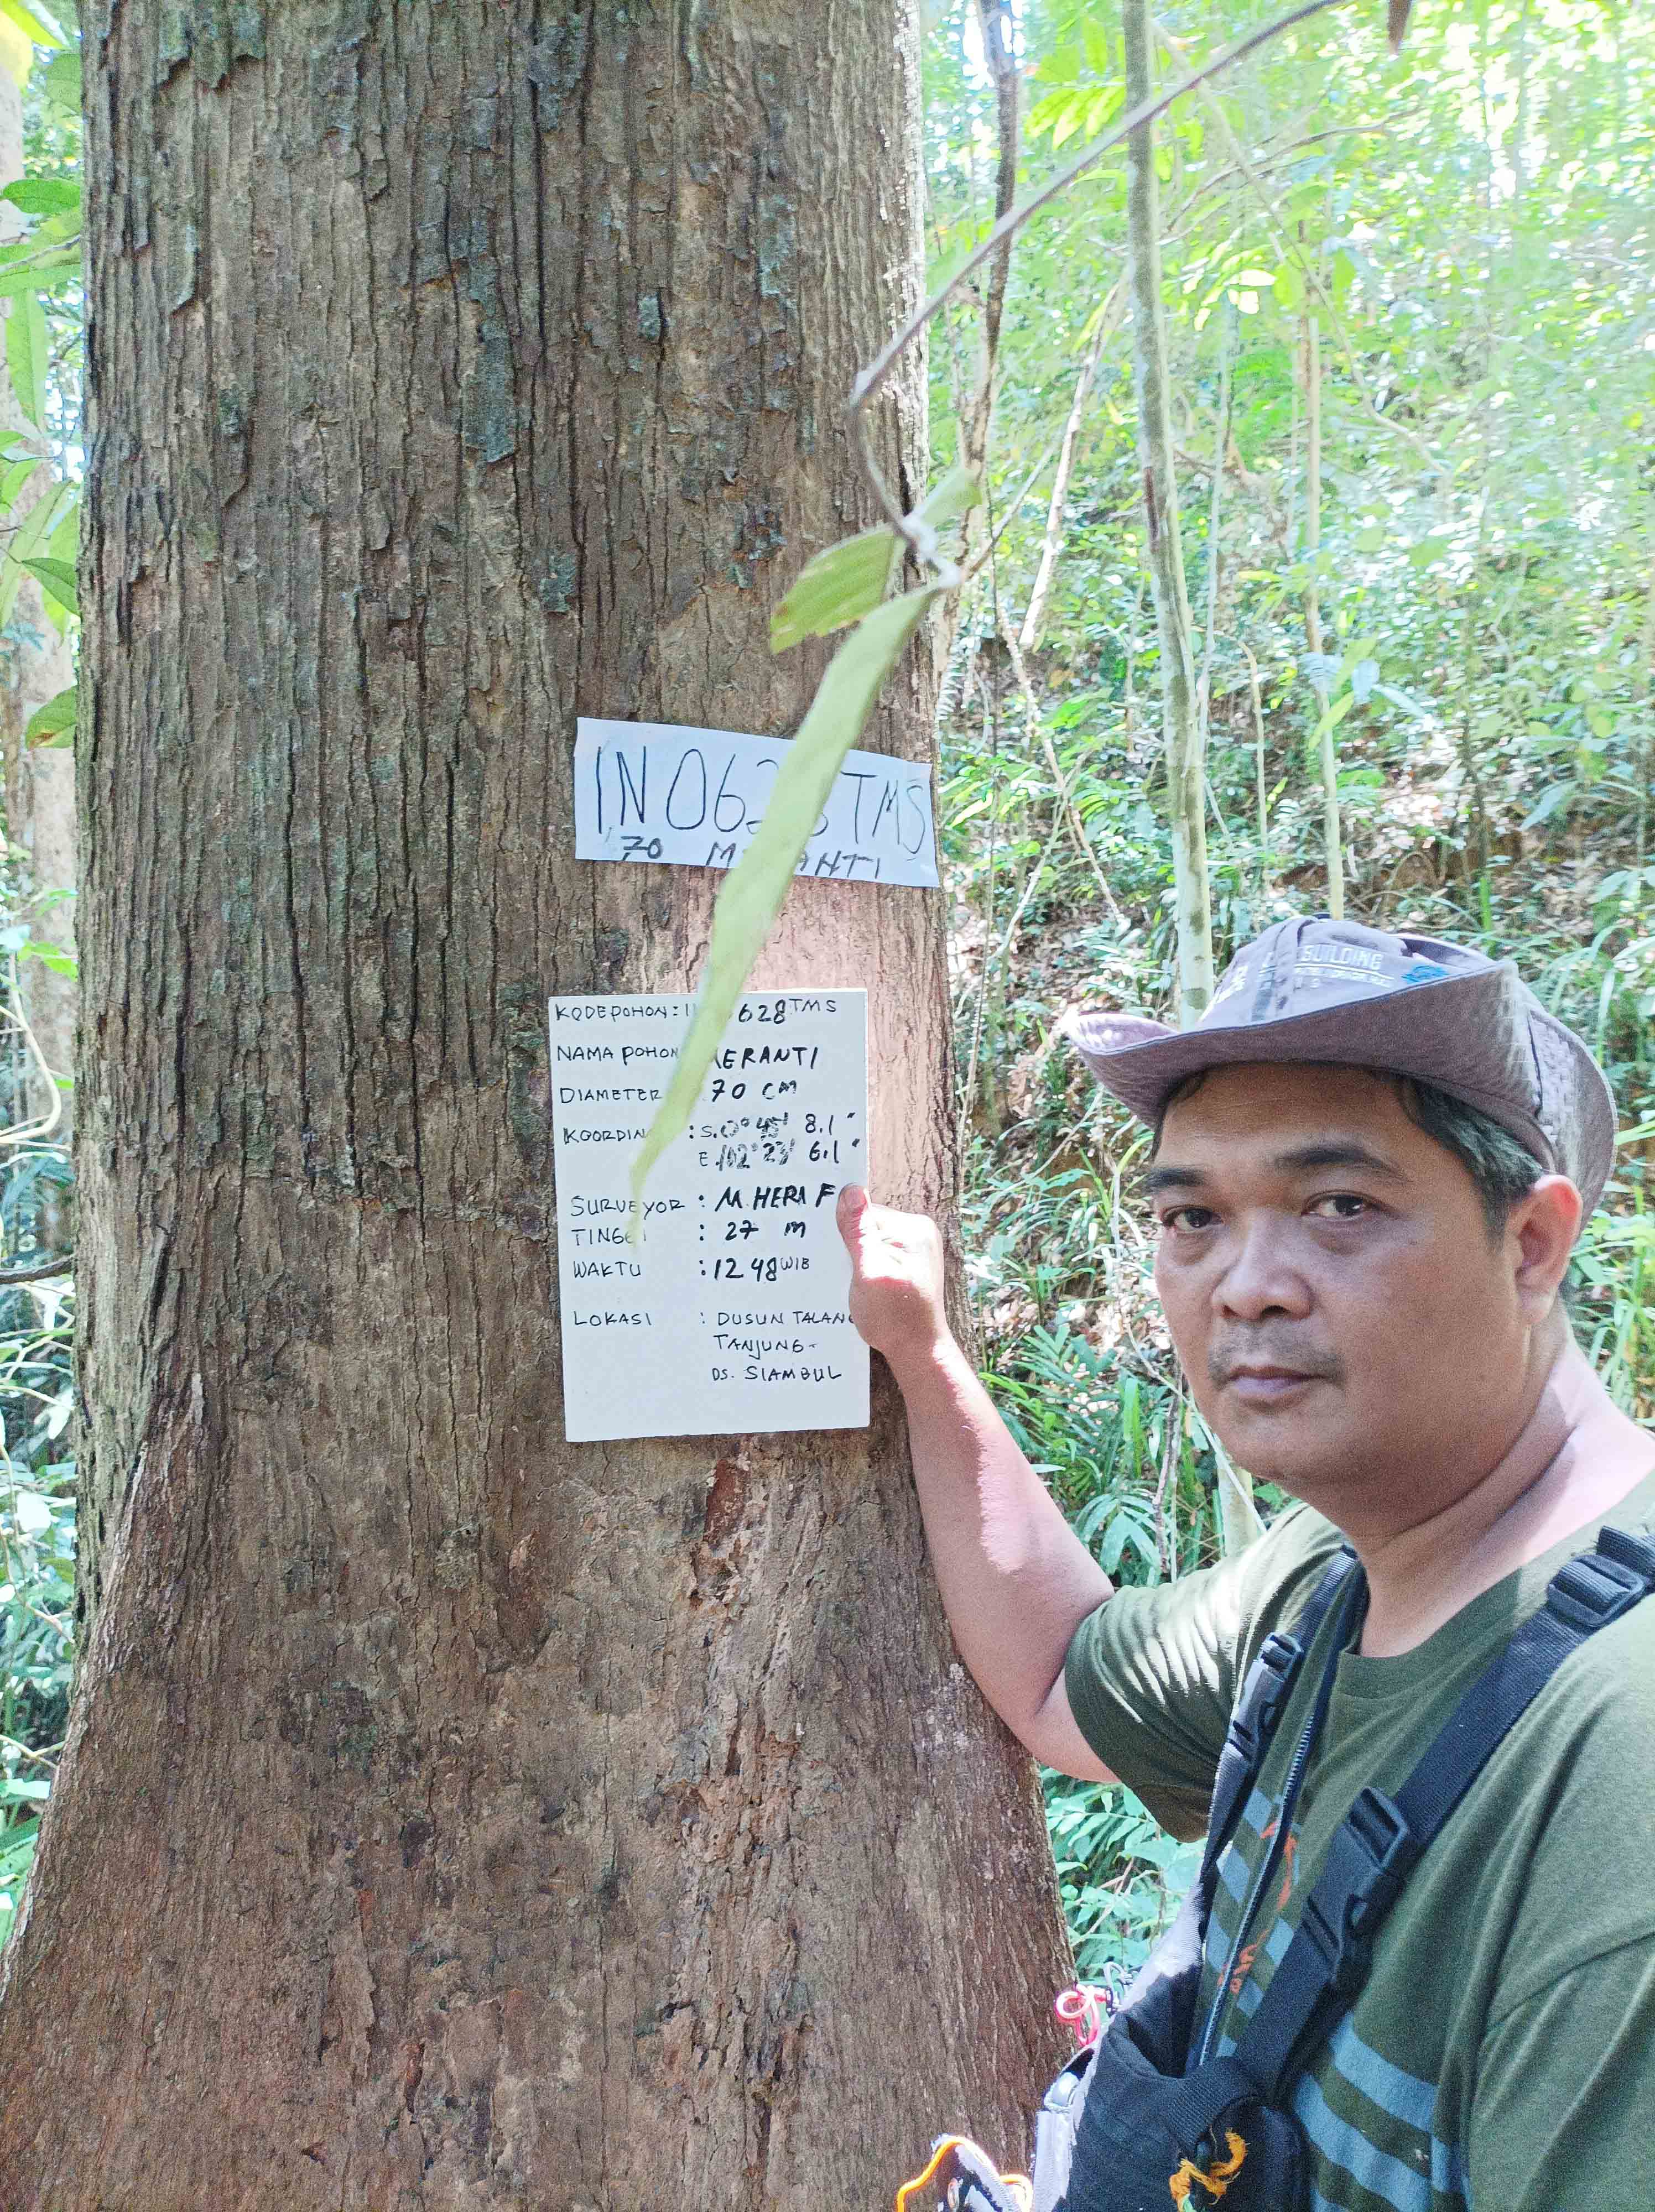 IN 062 TMS
70 M ANTI
KODE POHON : 628 TMS
NAMA POHON ERANTI
DIAMETER 70 CM
KOORDIN : S.0° 45' 8.1"
E.102° 23' 6.1"
SURVEYOR : M. HERA F
TINGGI : 27 m
WAKTU : 12 48 WIB
LOKASI : DUSUN TALANG
TANJUNG -
DS. SIAMBUL
BUILDING